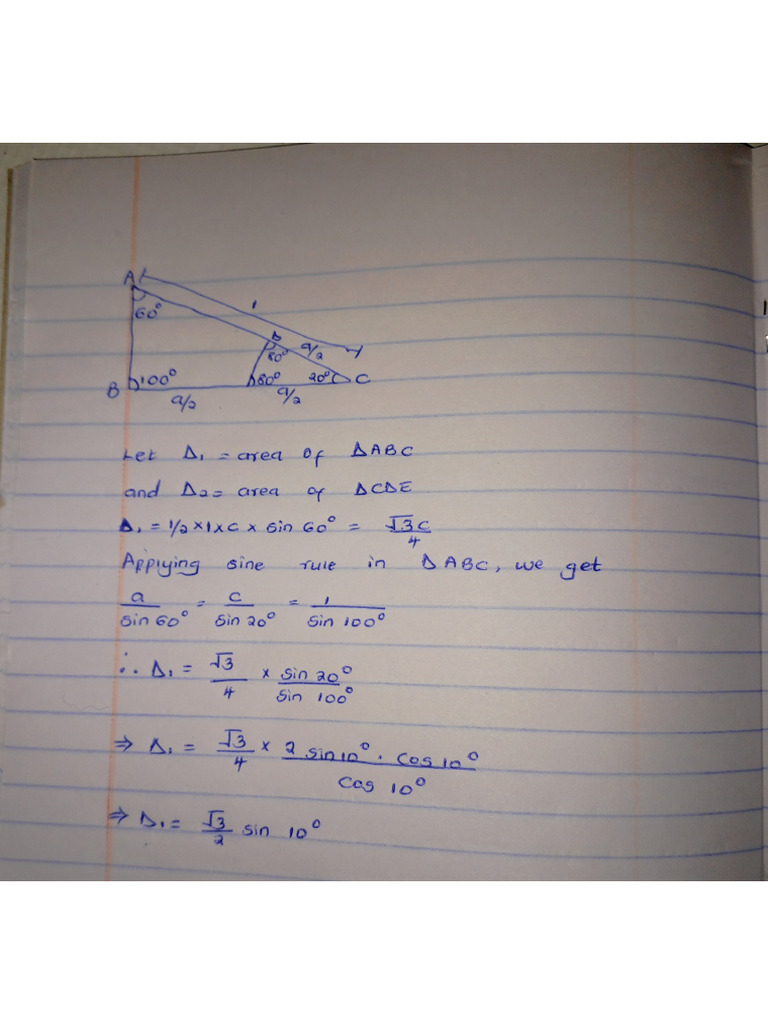 A
1
60°
D
80° a/2
B 100° 80° 20° C
a/2 a/2
Let Δ₁ = area of ΔABC
and Δ₂ = area of ΔCDE
Δ₁ = 1/2 × 1 × c × sin 60° = √3c/4
Applying sine rule in ΔABC, we get
a/sin 60° = c/sin 20° = 1/sin 100°
∴ Δ₁ = √3/4 × sin 20°/sin 100°
⇒ Δ₁ = √3/4 × 2 sin 10° · cos 10°/cos 10°
⇒ Δ₁ = √3/2 sin 10°